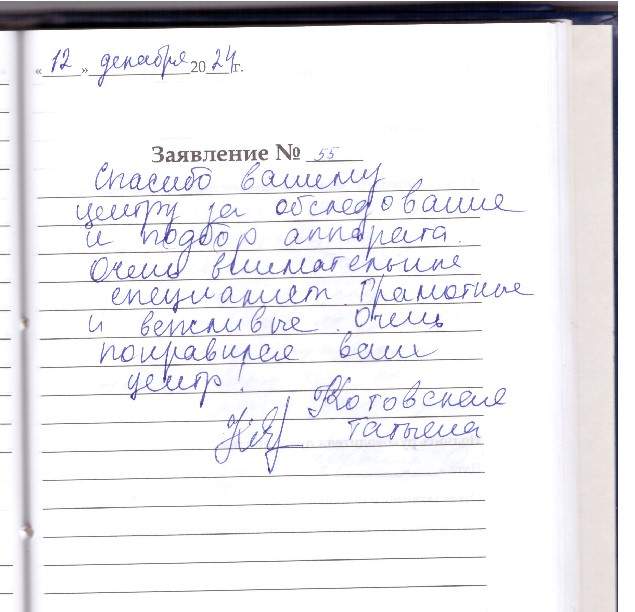 «12» декабря 2024 г.
Заявление № 55
Спасибо вашему
центру за обследование
и подбор аппарата.
Очень внимательные
специалист. Грамотные
и вежливые. Очень
понравился ваш
центр.
Котовская
Татьяна